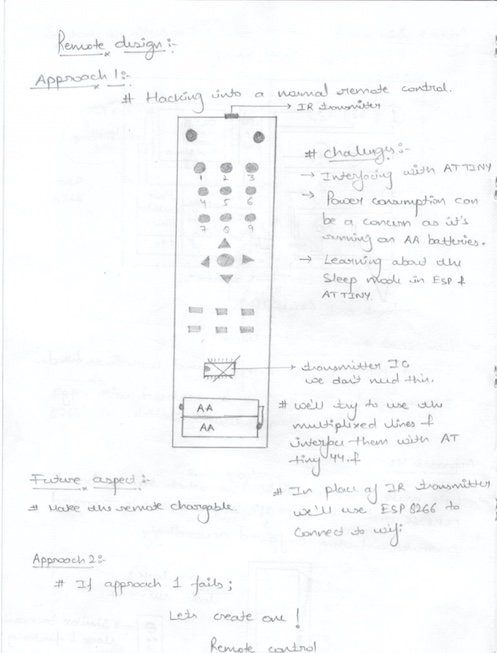 Remote design :-
Approach 1:-
# Hacking into a normal remote control.
IR transmitter
# Challenges :-
→ Interfacing with ATTINY
→ Power consumption can
be a concern as it's
running on AA batteries.
→ Learning about the
Sleep mode in ESP &
ATTINY.
1 2 3
4 5 6
7 8 9
transmitter IC
we don't need this.
AA
AA
# we'll try to use the
multiplixed lines &
interface them with AT
tiny 44.
Future aspect :-
# Make the remote chargable.
# In place of IR transmitter
we'll use ESP8266 to
Connect to wifi
Approach 2:-
# If approach 1 fails;
Let's create one!
Remote control